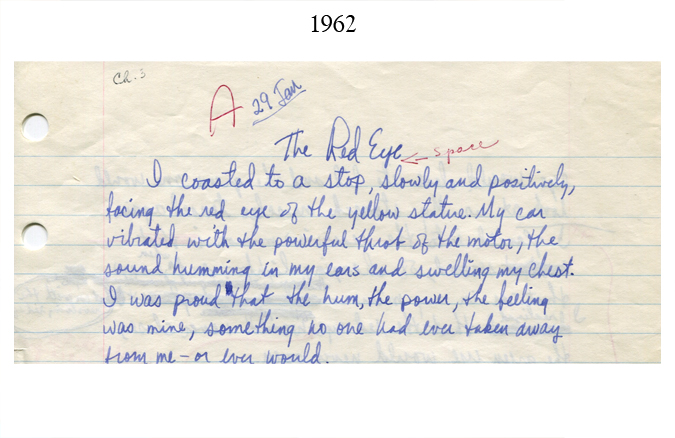 1962
Ch. 3
A
29 Jan
The Red Eye
← space
I coasted to a stop, slowly and positively,
facing the red eye of the yellow statue. My car
vibrated with the powerful throb of the motor, the
sound humming in my ears and swelling my chest.
I was proud that the hum, the power, the feeling
was mine, something no one had ever taken away
from me - or ever would.